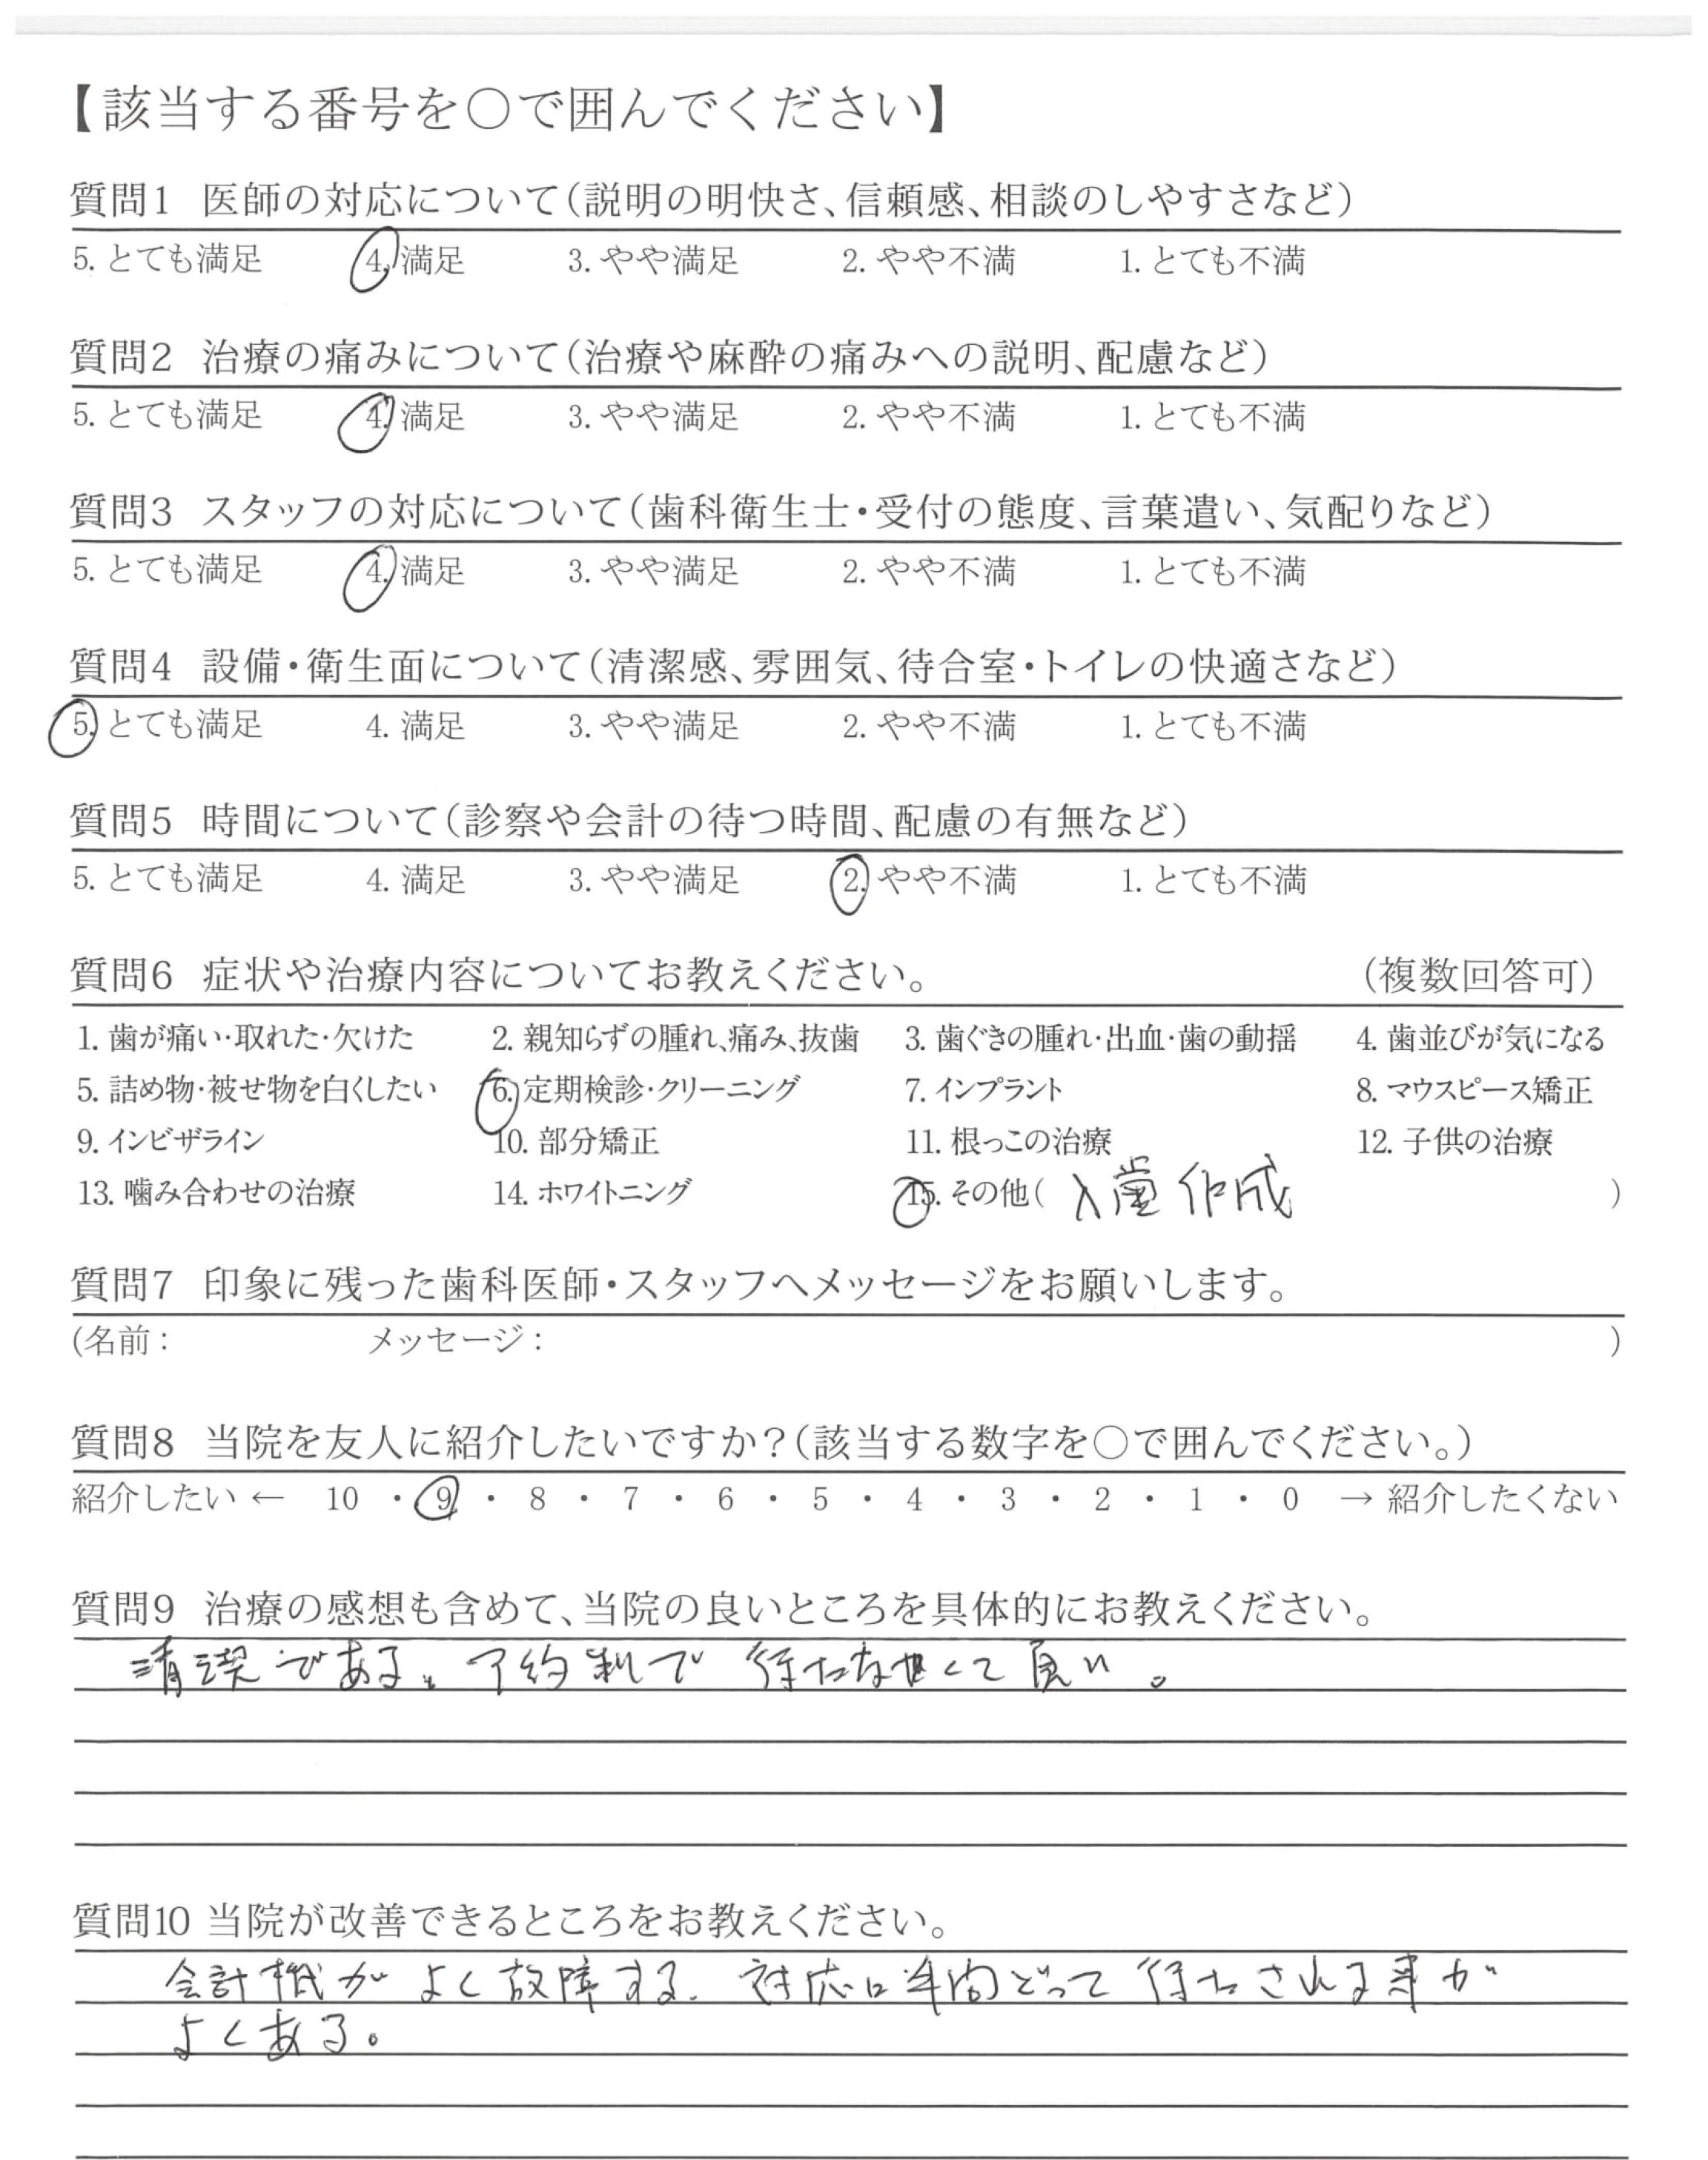 【該当する番号を○で囲んでください】
質問1 医師の対応について(説明の明快さ、信頼感、相談のしやすさなど)
5. とても満足 4. 満足 3. やや満足 2. やや不満 1. とても不満
質問2 治療の痛みについて(治療や麻酔の痛みへの説明、配慮など)
5. とても満足 4. 満足 3. やや満足 2. やや不満 1. とても不満
質問3 スタッフの対応について(歯科衛生士・受付の態度、言葉遣い、気配りなど)
5. とても満足 4. 満足 3. やや満足 2. やや不満 1. とても不満
質問4 設備・衛生面について(清潔感、雰囲気、待合室・トイレの快適さなど)
5. とても満足 4. 満足 3. やや満足 2. やや不満 1. とても不満
質問5 時間について(診察や会計の待つ時間、配慮の有無など)
5. とても満足 4. 満足 3. やや満足 2. やや不満 1. とても不満
質問6 症状や治療内容についてお教えください。 (複数回答可)
1. 歯が痛い・取れた・欠けた 2. 親知らずの腫れ、痛み、抜歯 3. 歯ぐきの腫れ・出血・歯の動揺 4. 歯並びが気になる
5. 詰め物・被せ物を白くしたい 6. 定期検診・クリーニング 7. インプラント 8. マウスピース矯正
9. インビザライン 10. 部分矯正 11. 根っこの治療 12. 子供の治療
13. 噛み合わせの治療 14. ホワイトニング 15. その他( 入歯作成 )
質問7 印象に残った歯科医師・スタッフへメッセージをお願いします。
(名前: メッセージ: )
質問8 当院を友人に紹介したいですか?(該当する数字を○で囲んでください。)
紹介したい ← 10 ・ 9 ・ 8 ・ 7 ・ 6 ・ 5 ・ 4 ・ 3 ・ 2 ・ 1 ・ 0 → 紹介したくない
質問9 治療の感想も含めて、当院の良いところを具体的にお教えください。
清潔である。予約制で待たなくて良い。
質問10 当院が改善できるところをお教えください。
会計機がよく故障する。対応に手間どって待たされる事が
よくある。